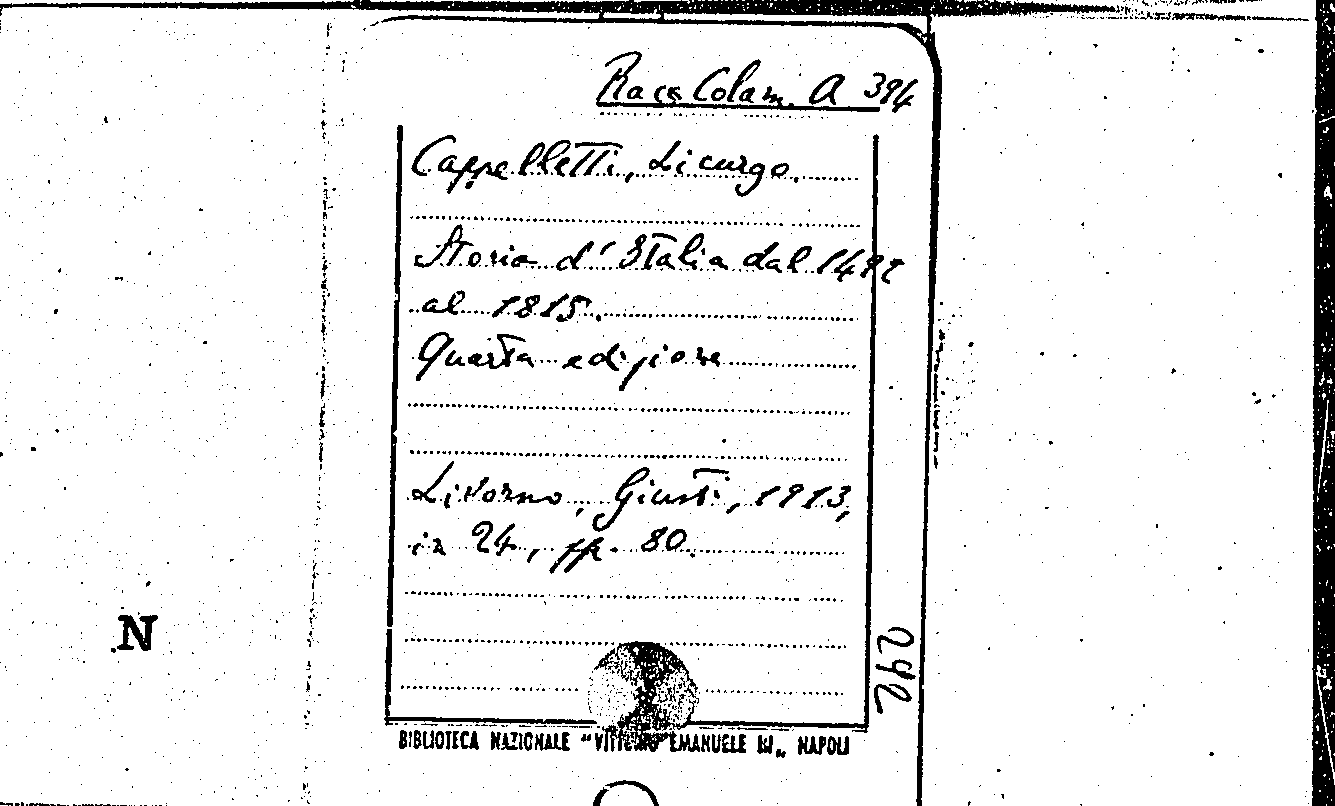 Racc. Colam. A 394
Cappelletti, Licurgo.
Storia d'Italia dal 1492
al 1815.
Quarta edizione
Livorno, Giusti, 1913,
in 24, pp. 80.
N
242
BIBLIOTECA NAZIONALE "VITTORIO EMANUELE III„ NAPOLI